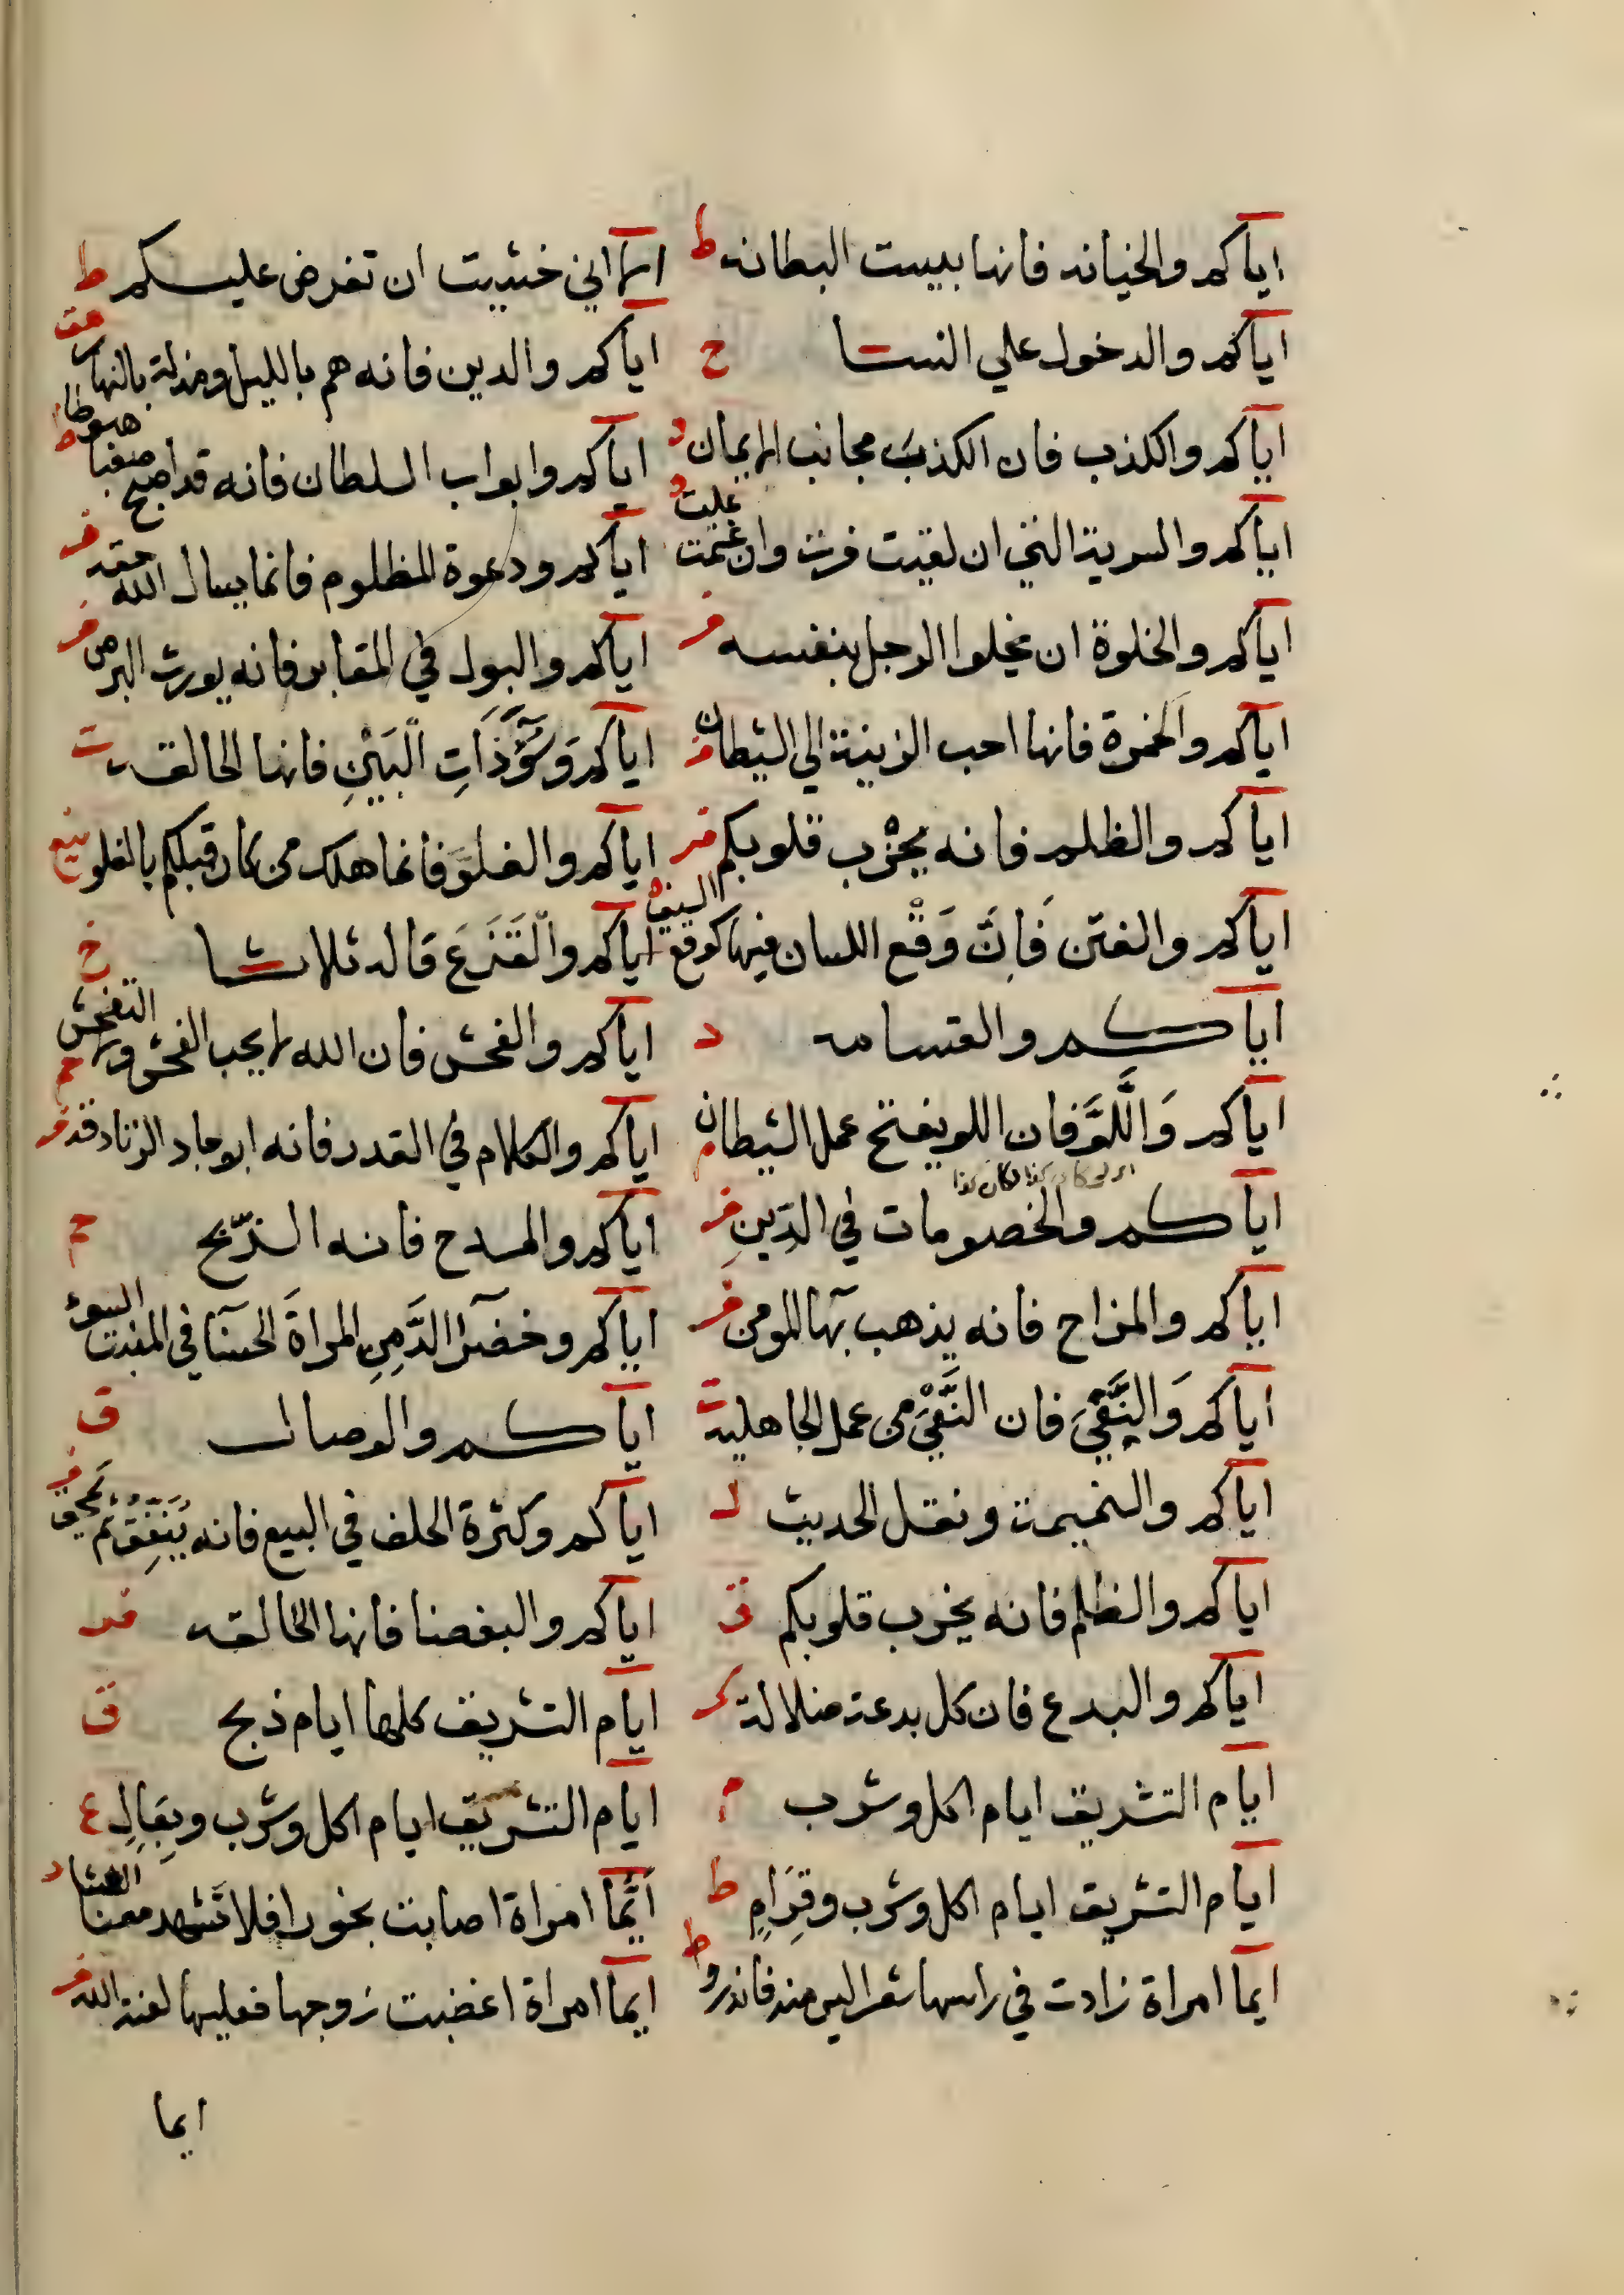 اياكم والخيانه فانها بيست البطانه ط
اياكم والدخول علي النسا ح
اياكم والكذب فان الكذب مجانب الايمان د
اياكم والسرية التي ان لقيت فرت وان غنمت غلت د
اياكم والخلوة ان يخلوا الرجل بنفسه فر
اياكم والخمرة فانها احب الزينة الي الشيطان
اياكم والظلم فانه يخرب قلوبكم فر
اياكم والفتن فان وَقْع اللسان فيها كوقع السيف ه
اياكم والقسامه د
اياكم وَاللَّوَّ فان اللو يفتح عمل الشيطان م
اياكم والخصومات في الدين فر
اياكم والمزاح فانه يذهب بهآ المومن فر
اياكم وَالنَّعْيَ فان النَّعْيَ من عمل الجاهلية ت
اياكم والنميمة ونقل الحديث ل
اياكم والظلم فانه يخرب قلوبكم ق
اياكم والبدع فان كل بدعة ضلالة كر
ايام التشريق ايام اكل وشرب م
ايام التشريق ايام اكل وشرب وقِرَامٍ ط
ايما امراة زادت في راسها شعرا ليس منه فانه زور ط
اني خشيت ان تفرض عليكم ط
اياكم والدين فانه هم بالليل ومذلة بالنهار هق
اياكم وابواب السلطان فانه قد اصبح صعبا هبوطا ط
اياكم ودعوة المظلوم فانما يسال الله حقه فر
اياكم والبول في المقابر فانه يورث البرص فر
اياكم وَسُوٓءَ ذَاتِ الْبَيْنِ فانها الحالقه ت
اياكم والغلوَّ فانما هلك من كان قبلكم بالغلو
اياكم والْقَزَعَ قاله ثلاثا خ
اياكم والفحش فان الله لا يحب الفحش ولا التفحش حم
اياكم والكلام في القدر فانه ابو جاد الزنادقه فر
اياكم والمدح فانه الذّبح حم
اياكم وخضرآ الدَّمِنِ المراةَ الحسنآ في المنبت السوء
اياكم والوصال ق
اياكم وكثرة الحلف في البيع فانه يُنَفِّقُ ثم يَمحق فر
اياكم والبغضا فانها الحالقه فر
ايام التشريق كلها ايام ذبح ق
ايام التشريق ايام اكل وشرب وبِعَالٍ ع
اَيُّمَا امراة اصابت بخورا فلا تَشهد معنا العشا د
ايما امراة اغضبت زوجها فعليها لعنة الله فر
ايما